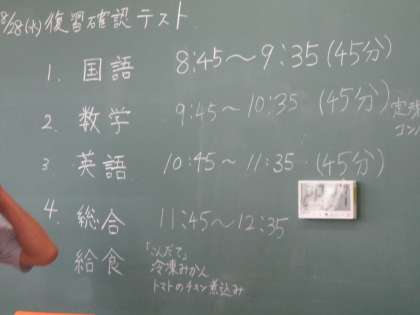 8/28(水)復習確認テスト
1. 国語 8:45～9:35(45分)
2. 数学 9:45～10:35 (45分)
コン
3. 英語 10:45～11:35 (45分)
4. 総合 11:45～12:35
給食 「こんだて」
冷凍みかん
トマトのチキン煮込み